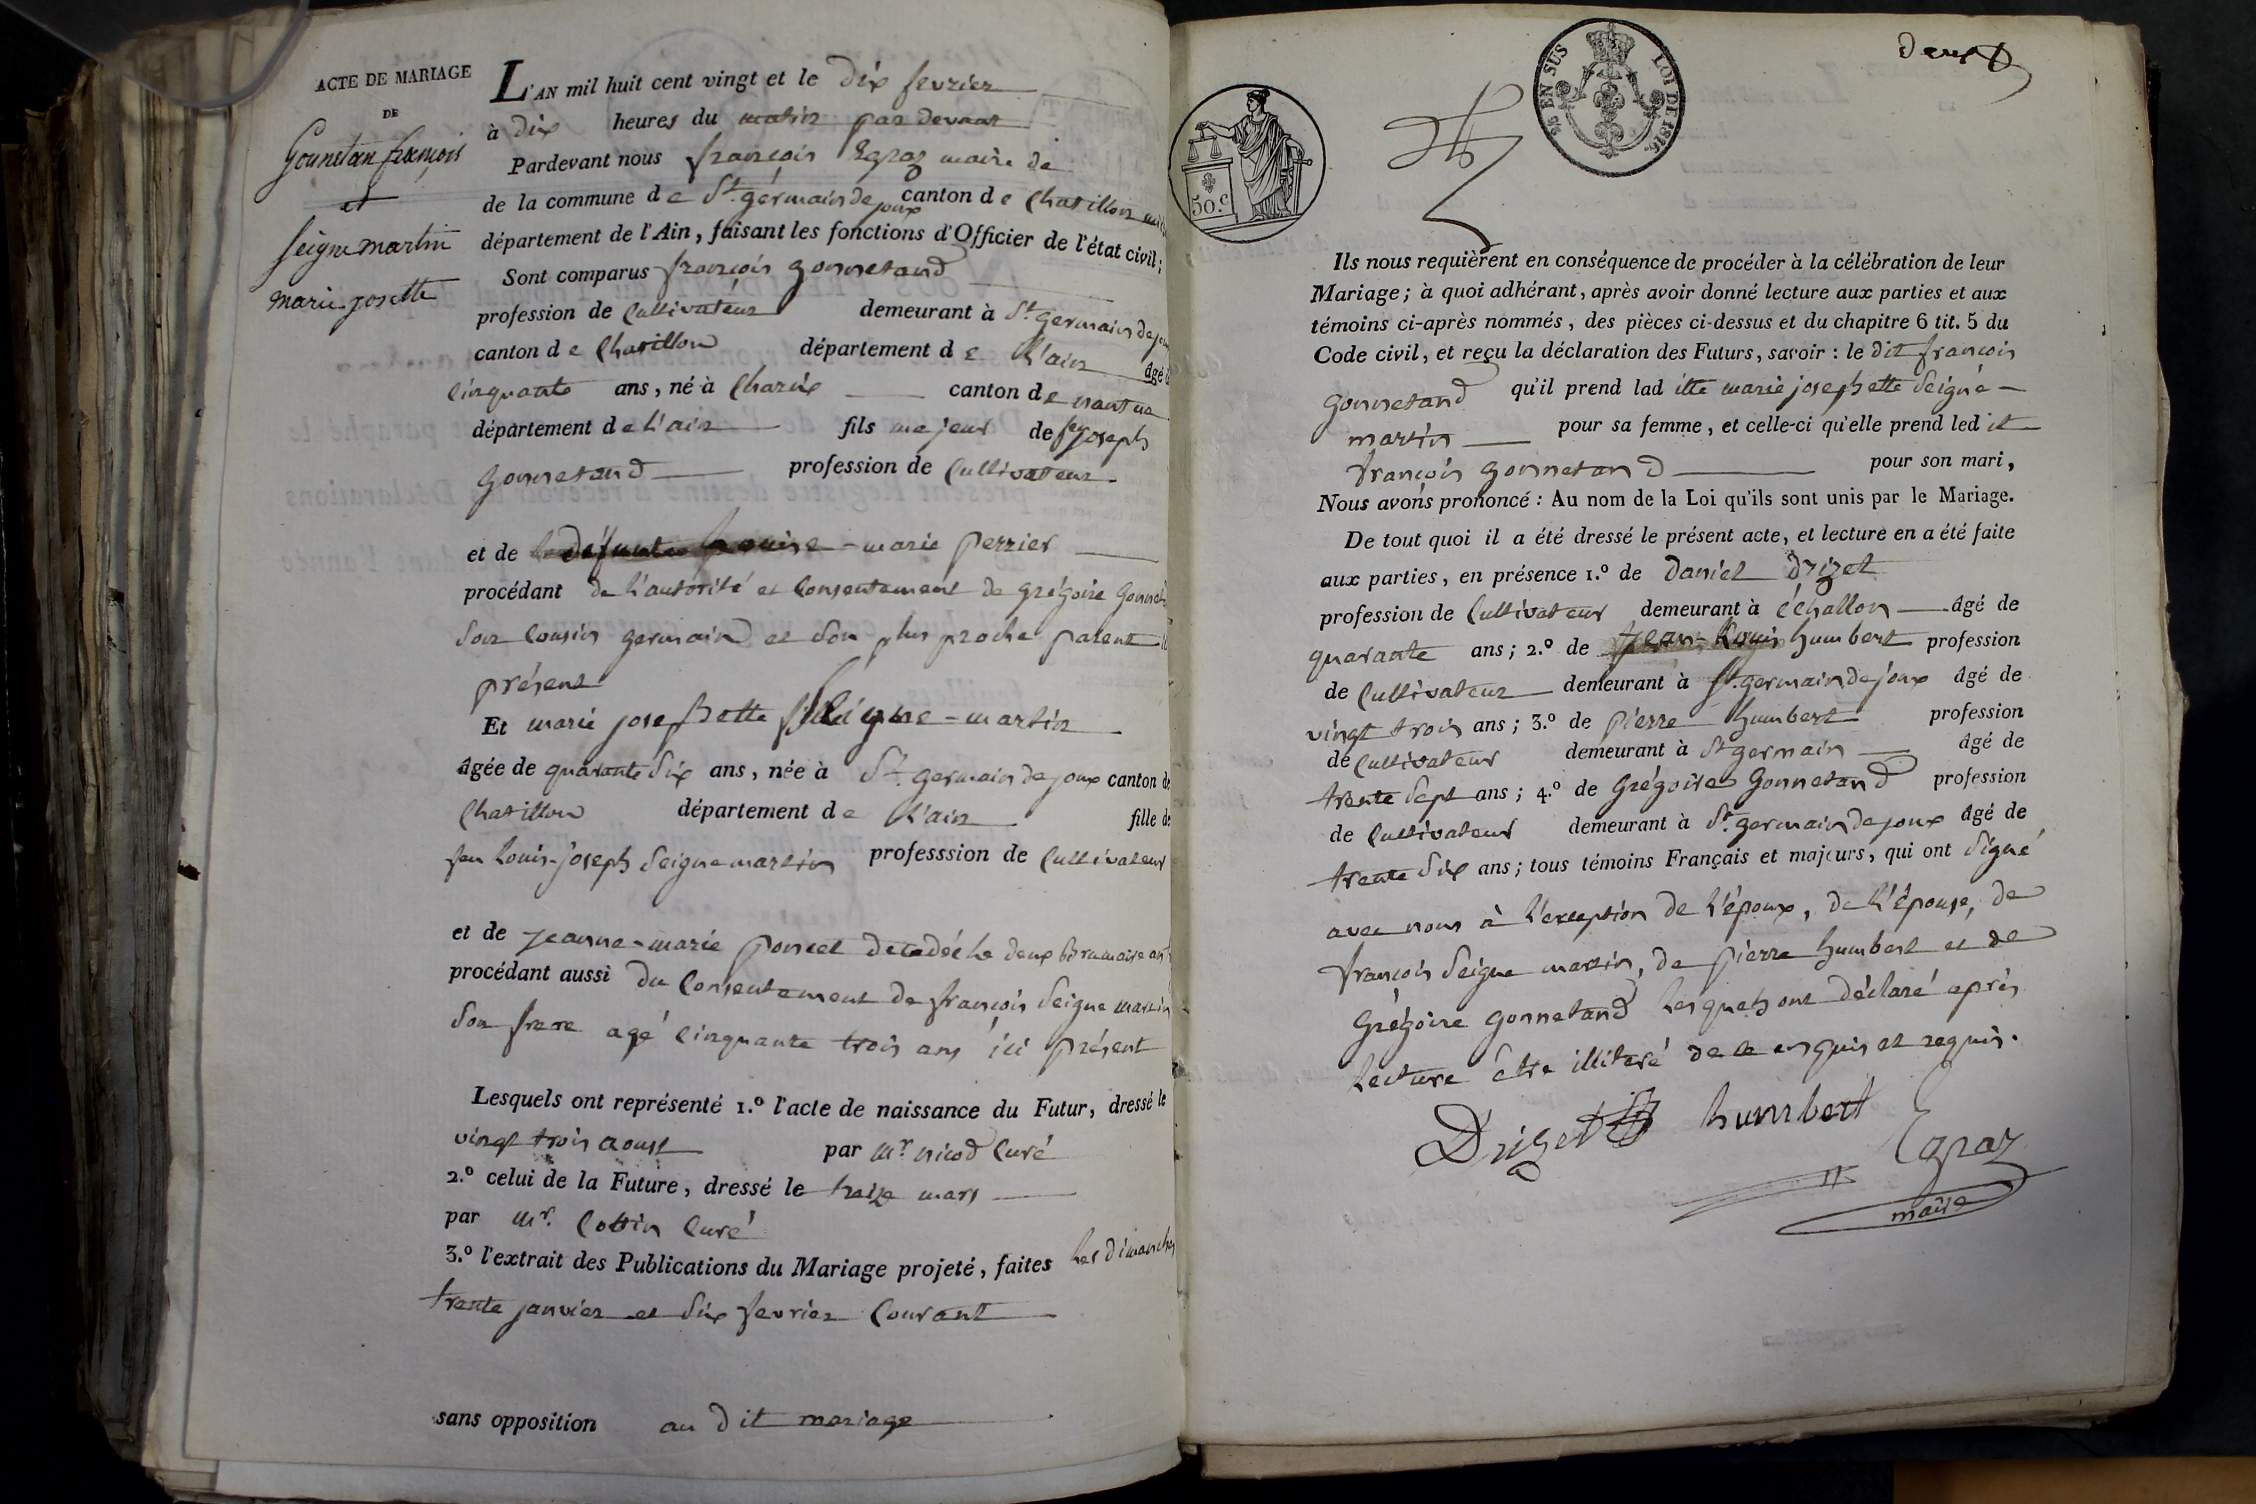 ACTE DE MARIAGE
DE
Gounetan françois
et
seigne martin
marie josette
L'AN mil huit cent vingt et le dix fevrier
à dix heures du matin par devant
Pardevant nous françois Egraz maire de
de la commune de St. germain de joux canton de Chatillon
département de l'Ain, faisant les fonctions d'Officier de l'état civil;
Sont comparus françois gonnetand
profession de Cultivateur demeurant à St germain de joux
canton de Chatillon département de l'ain âgé
cinquante ans, né à Charix canton de nantua
département de l'ain fils majeur de feu joseph
gonnetand profession de Cultivateur
et de defunte Louise-marie perrier
procédant de l'autorité et Consentement de grégoire Gonnet
son Cousin germain et son plus proche parent
présent
Et marie josephette seigne-martin
âgée de quarante six ans, née à St. germain de joux canton de
Chatillon département de l'ain fille de
feu Louis-joseph seigne martin professsion de Cultivateur
et de jeanne-marie poncet decedée le deux brumaire an
procédant aussi du Consentement de françois seigne martin
son frere agé cinquante trois ans ici présent
Lesquels ont représenté 1.º l'acte de naissance du Futur, dressé le
vingt trois aoust par Mr. nicod Curé
2.º celui de la Future, dressé le treize mars
par Mr. Cottin Curé
3.º l'extrait des Publications du Mariage projeté, faites les dimanches
trente janvier et six fevrier Courant
sans opposition au dit mariage
deux
25 EN SUS
LOI DE 1816.
50.c
Ils nous requièrent en conséquence de procéder à la célébration de leur
Mariage; à quoi adhérant, après avoir donné lecture aux parties et aux
témoins ci-après nommés, des pièces ci-dessus et du chapitre 6 tit. 5 du
Code civil, et reçu la déclaration des Futurs, savoir : le dit françois
gonnetand qu'il prend lad itte marie josephette seigne-
martin pour sa femme, et celle-ci qu'elle prend led it
françois gonnetand pour son mari,
Nous avons prononcé : Au nom de la Loi qu'ils sont unis par le Mariage.
De tout quoi il a été dressé le présent acte, et lecture en a été faite
aux parties, en présence 1.º de daniel drizet
profession de Cultivateur demeurant à échallon âgé de
quarante ans; 2.º de jean-Louis humbert profession
de Cultivateur demeurant à St. germain de joux âgé de
vingt trois ans; 3.º de pierre humbert profession
de Cultivateur demeurant à St germain âgé de
trente sept ans; 4.º de Grégoire Gonnetand profession
de Cultivateur demeurant à St. germain de joux âgé de
trente six ans; tous témoins Français et majeurs, qui ont signé
avec nous à l'exception de l'époux, de l'épouse, de
françois seigne martin, de pierre humbert et de
Grégoire gonnetand lesquels ont déclaré après
lecture être illiteré de ce enquis et requis.
Drizet humbert
Egraz
maire